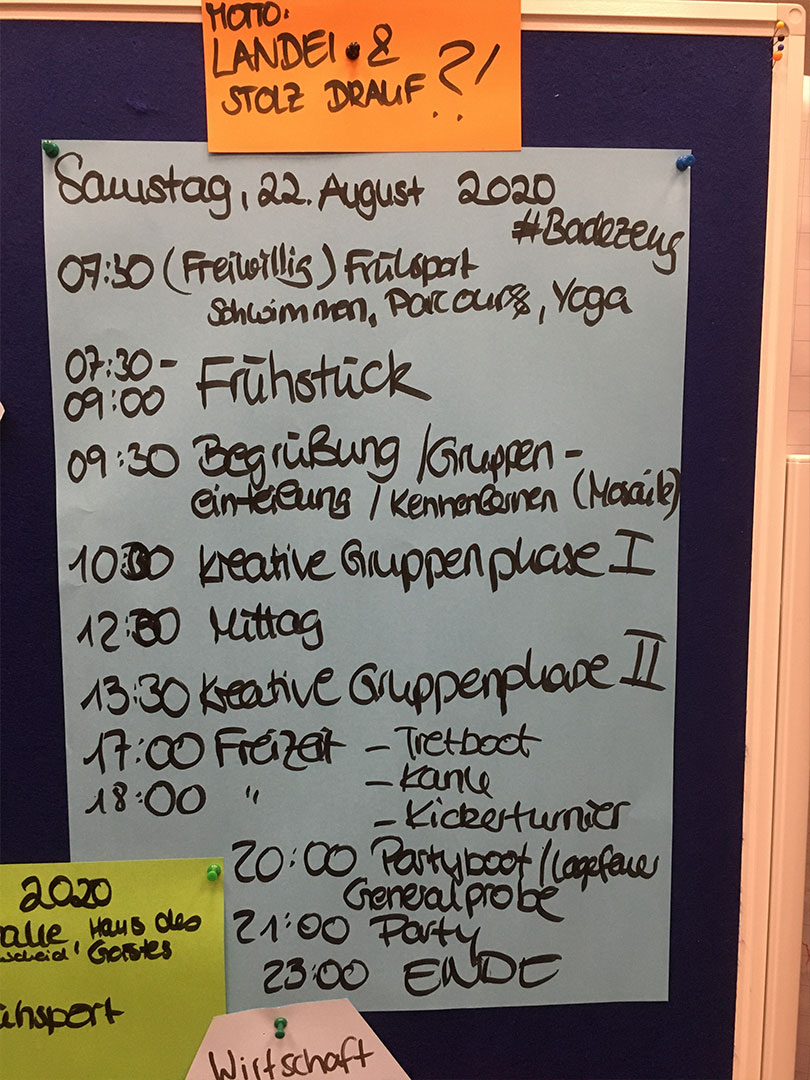 MOTTO:
LANDEI &
STOLZ DRAUF ?!
Samstag, 22. August 2020
#Badezeug
07:30 (Freiwillig) Frühsport
Schwimmen, Parcours, Yoga
07:30 -
09:00 Frühstück
09:30 Begrüßung / Gruppen -
einteilung / Kennenlernen (Mosaik)
10:30 Kreative Gruppenphase I
12:30 Mittag
13:30 Kreative Gruppenphase II
17:00 Freizeit - Tretboot
18:00 " - Kanu
- Kickerturnier
20:00 Partyboot / Lagefeuer
Generalprobe
21:00 Party
23:00 ENDE
2020
Haus des
Gastes
hsport
Wirtschaft